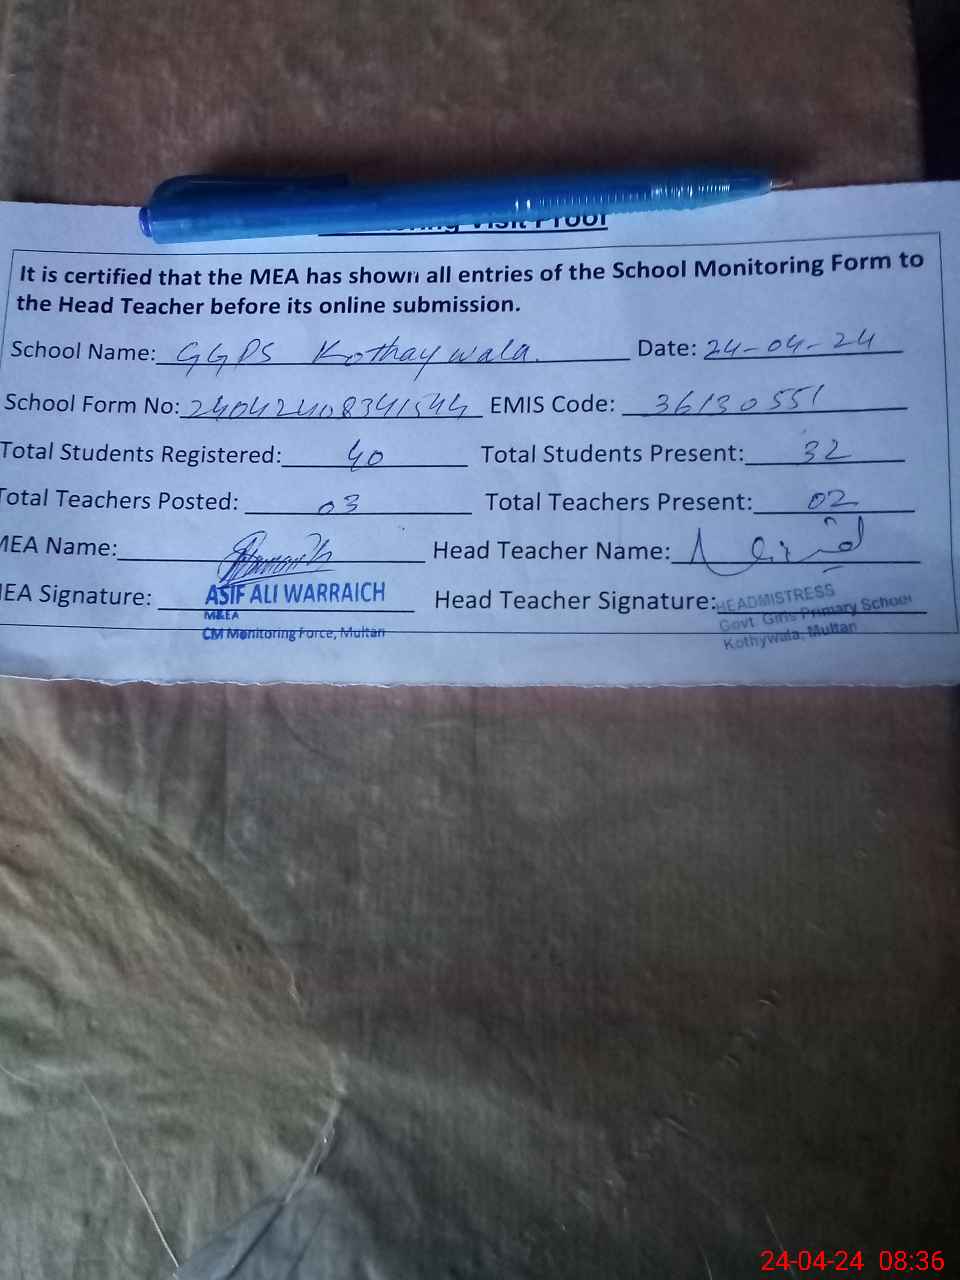 Visit Proof
It is certified that the MEA has shown all entries of the School Monitoring Form to
the Head Teacher before its online submission.
School Name: GGPS Kothay wala. Date: 24-04-24
School Form No: 24042408341544 EMIS Code: 36130551
Total Students Registered: 40 Total Students Present: 32
Total Teachers Posted: 03 Total Teachers Present: 02
MEA Name: Head Teacher Name:
MEA Signature: ASIF ALI WARRAICH Head Teacher Signature: HEADMISTRESS
M&EA Govt. Girls Primary School
CM Monitoring Force, Multan Kothywala, Multan
24-04-24 08:36